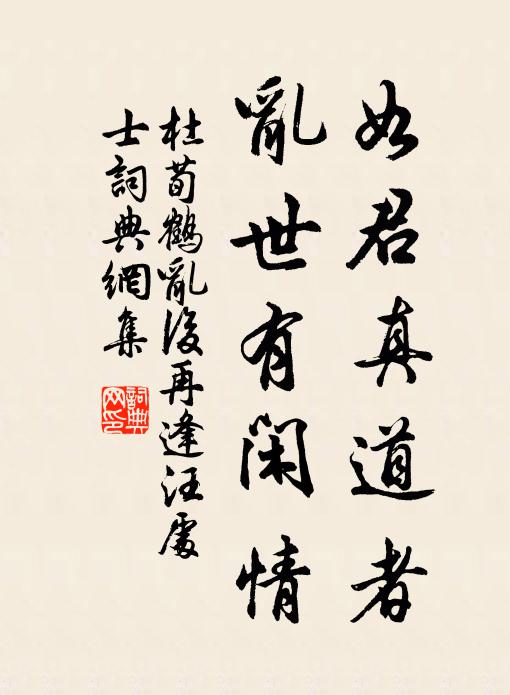 如君真道者
亂世有閑情
杜荀鶴亂後再逢汪處
士詞典網集
詞典網印